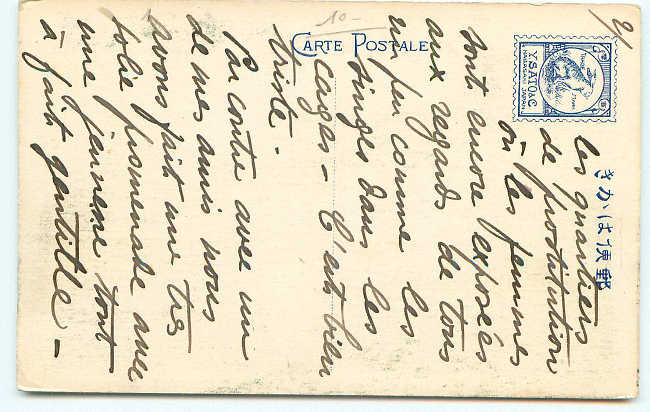 10-
CARTE POSTALE
Y. SATO & C
きかは便郵
2/
les quartiers
de prostitution
où les femmes
sont encore exposées
aux regards de tous
un peu comme les
singes dans les
cages - C'est bien
triste -
Par contre avec un
de mes amis nous
avons fait une très
jolie promenade avec
une tout
à fait gentille -